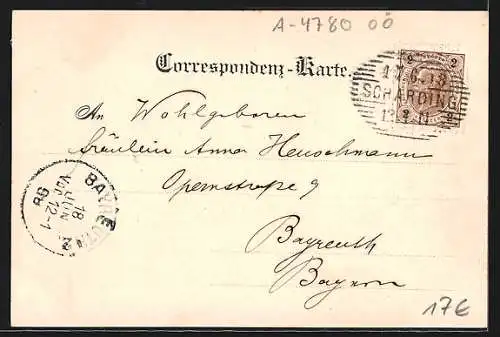 A-4780 00
Correspondenz-Karte.
2 2
17.6.13
SCHÄRDING
2 2
An Wohlgeboren
Fräulein Anna Heuschmann
Opernstraße 9
Bayreuth
Bayern
BAYREUTH
18 JUN
Vor. 12-1
98
17€